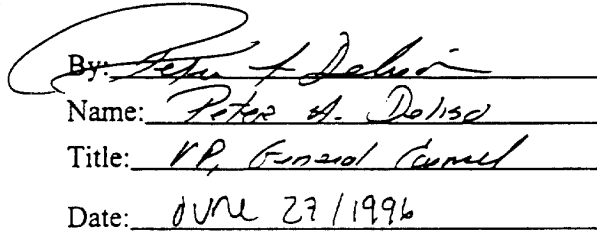 By:
Name: Peter A. Deliso
Title: VP, General Counsel
Date: June 27/1996